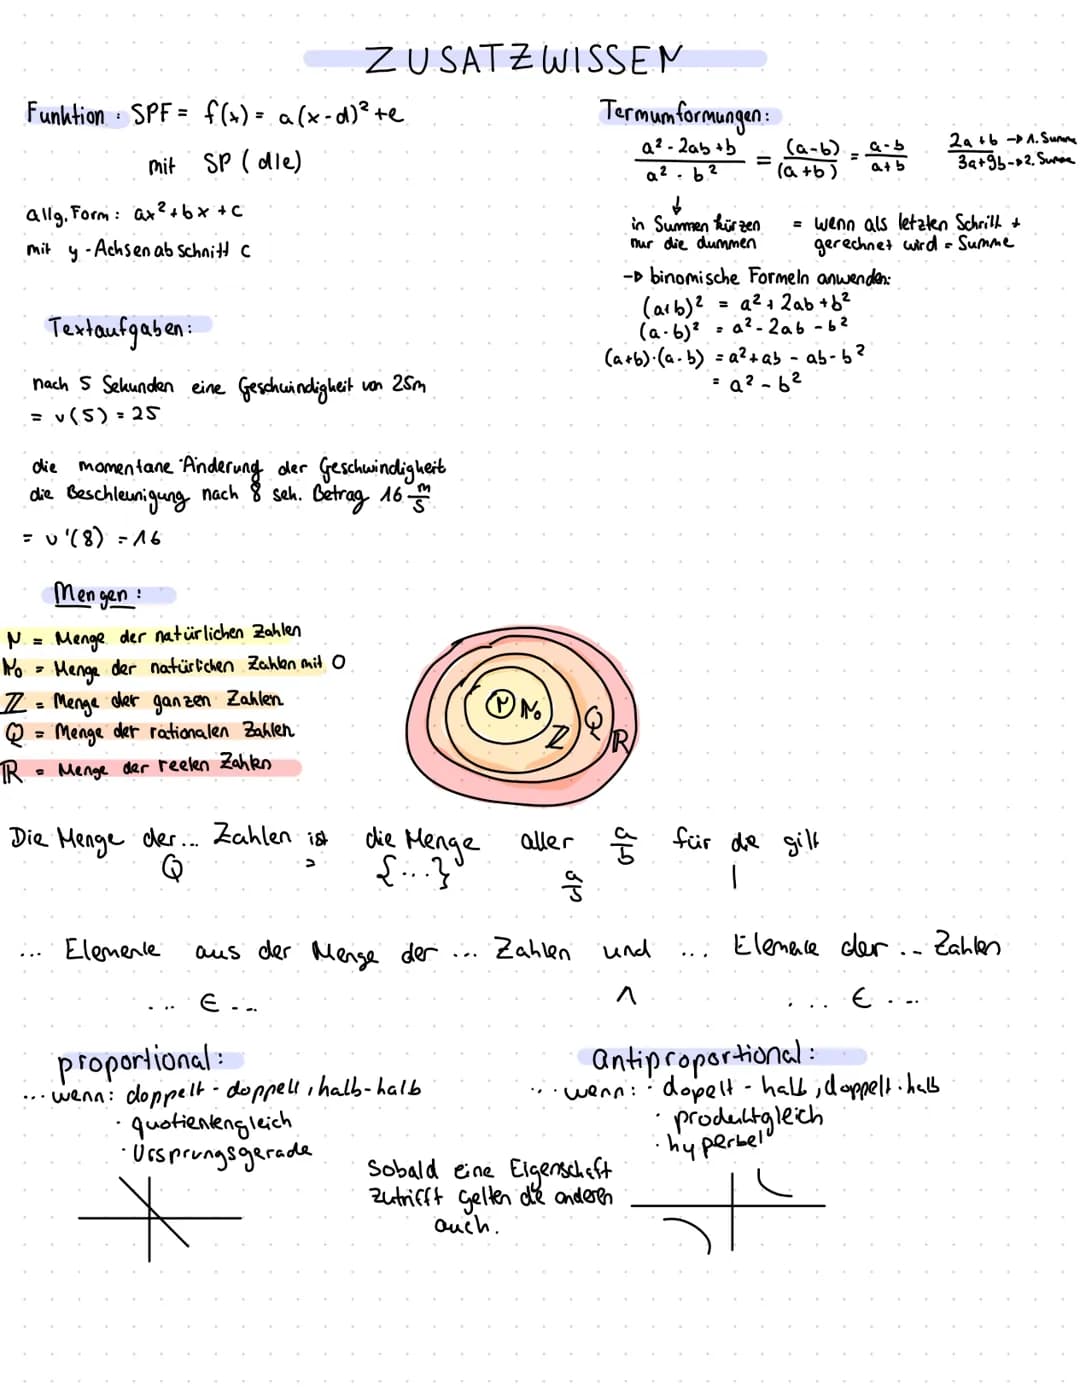 ZUSATZWISSEN
Funktion : SPF = f(x) = a(x-d)²+e
mit SP (d|e)
allg. Form: ax²+bx+c
mit y-Achsenabschnitt c
Textaufgaben:
nach 5 Sekunden eine Geschwindigkeit von 25m
= v(5) = 25
die momentane Änderung der Geschwindigkeit
die Beschleunigung nach 8 sek. Betrag 16 m/s
= v'(8) = 16
Termumformungen:
a² - 2ab + b / a² - b² = (a-b) / (a+b) = a-b / a+b
2a + b -> 1. Summe
3a+9b -> 2. Summe
↓
in Summen kürzen = wenn als letzten Schritt +
nur die dummen gerechnet wird = Summe
-> binomische Formeln anwenden:
(a+b)² = a² + 2ab + b²
(a-b)² = a² - 2ab - b²
(a+b)·(a-b) = a² + ab - ab - b²
= a² - b²
Mengen :
N = Menge der natürlichen Zahlen
N₀ = Menge der natürlichen Zahlen mit 0
ℤ = Menge der ganzen Zahlen
Q = Menge der rationalen Zahlen
ℝ = Menge der reelen Zahlen
N N₀ ℤ Q ℝ
Die Menge der... Zahlen ist die Menge aller a/b für die gilt
Q = {...} a/b |
... Elemente aus der Menge der ... Zahlen und ... Elemente der ... Zahlen
... ∈ ... ∧ ... ∈ ...
proportional:
... wenn: doppelt - doppelt, halb-halb
· quotientengleich
· Ursprungsgerade
antiproportional:
... wenn: · dopelt - halb, doppelt - halb
· produktgleich
· hyperbel
Sobald eine Eigenschaft
zutrifft gelten die anderen
auch.